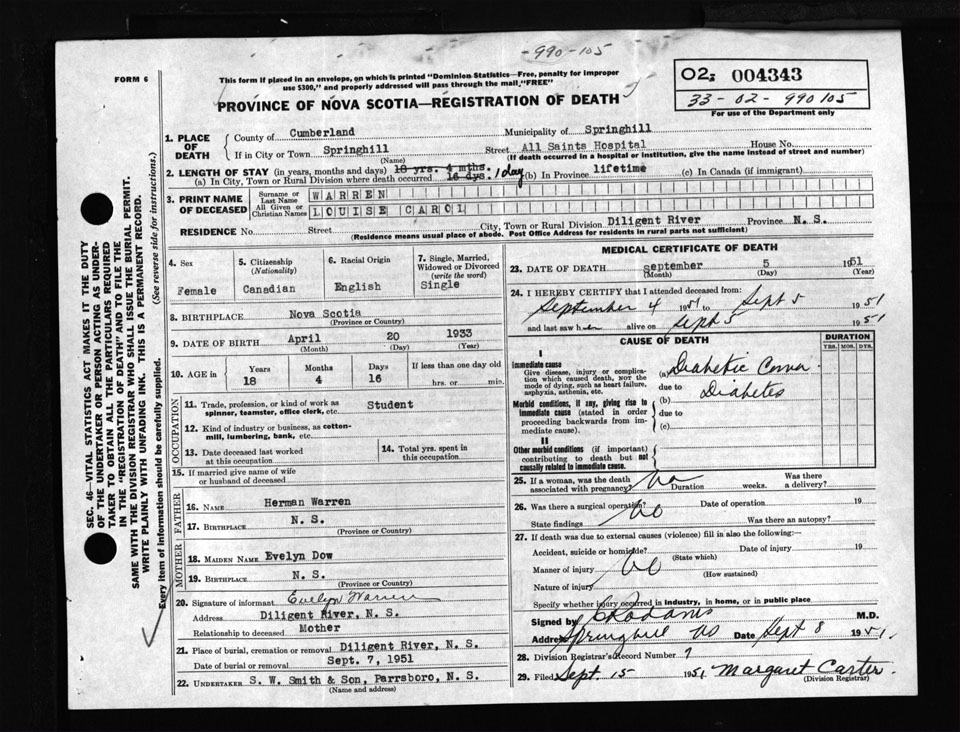 990-105
FORM 6
This form if placed in an envelope, on which is printed "Dominion Statistics—Free, penalty for improper
use $300," and properly addressed will pass through the mail, "FREE"
PROVINCE OF NOVA SCOTIA—REGISTRATION OF DEATH
02; 004343
33-02-990105
For use of the Department only
SEC. 46—VITAL STATISTICS ACT MAKES IT THE DUTY
OF THE UNDERTAKER OR PERSON ACTING AS UNDER-
TAKER TO OBTAIN ALL THE PARTICULARS REQUIRED
IN THE "REGISTRATION OF DEATH" AND TO FILE THE
SAME WITH THE DIVISION REGISTRAR WHO SHALL ISSUE THE BURIAL PERMIT.
WRITE PLAINLY WITH UNFADING INK. THIS IS A PERMANENT RECORD.
Every item of information should be carefully supplied. (See reverse side for instructions.)
1. PLACE OF DEATH
County of Cumberland Municipality of Springhill
If in City or Town Springhill Street All Saints Hospital House No.
(Name) (If death occurred in a hospital or institution, give the name instead of street and number)
2. LENGTH OF STAY (in years, months and days) 18 yrs. 4 mths.
(a) In City, Town or Rural Division where death occurred 16 dys. 1 day (b) In Province lifetime (c) In Canada (if immigrant)
3. PRINT NAME OF DECEASED
Surname or Last Name WARREN
All Given or Christian Names LOUISE CAROL
RESIDENCE No. Street City, Town or Rural Division Diligent River Province N. S.
(Residence means usual place of abode. Post Office Address for residents in rural parts not sufficient)
4. Sex Female
5. Citizenship (Nationality) Canadian
6. Racial Origin English
7. Single, Married, Widowed or Divorced (write the word) Single
8. BIRTHPLACE Nova Scotia
(Province or Country)
9. DATE OF BIRTH April 20 1933
(Month) (Day) (Year)
10. AGE in Years 18 Months 4 Days 16 If less than one day old hrs. or min.
OCCUPATION
11. Trade, profession, or kind of work as spinner, teamster, office clerk, etc. Student
12. Kind of industry or business, as cotton-mill, lumbering, bank, etc.
13. Date deceased last worked at this occupation
14. Total yrs. spent in this occupation
15. If married give name of wife or husband of deceased
FATHER
16. NAME Herman Warren
17. BIRTHPLACE N. S.
(Province or Country)
MOTHER
18. MAIDEN NAME Evelyn Dow
19. BIRTHPLACE N. S.
(Province or Country)
20. Signature of informant Evelyn Warren
Address Diligent River, N. S.
Relationship to deceased Mother
21. Place of burial, cremation or removal Diligent River, N. S.
Date of burial or removal Sept. 7, 1951
22. UNDERTAKER S. W. Smith & Son, Parrsboro, N. S.
(Name and address)
MEDICAL CERTIFICATE OF DEATH
23. DATE OF DEATH September 5 1951
(Month) (Day) (Year)
24. I HEREBY CERTIFY that I attended deceased from:
September 4 1951 to Sept 5 1951
and last saw her alive on Sept 5 1951
CAUSE OF DEATH
DURATION
YRS. MOS. DYS.
I
Immediate cause
Give disease, injury or complication which caused death, NOT the mode of dying, such as heart failure, asphyxia, asthenia, etc.
(a) Diabetic Coma
due to
Morbid conditions, if any, giving rise to immediate cause (stated in order proceeding backwards from immediate cause).
(b) Diabetes
due to
(c)
II
Other morbid conditions (if important) contributing to death but not causally related to immediate cause.
25. If a woman, was the death associated with pregnancy? No Duration weeks. Was there a delivery?
26. Was there a surgical operation? No Date of operation 19
State findings Was there an autopsy?
27. If death was due to external causes (violence) fill in also the following:—
Accident, suicide or homicide? Date of injury 19
(State which)
Manner of injury No
(How sustained)
Nature of injury
Specify whether injury occurred in industry, in home, or in public place
Signed by M.D.
Address Springhill NS Date Sept 8 1951.
28. Division Registrar's Record Number
29. Filed Sept. 15 1951 Margaret Carter.
(Division Registrar)